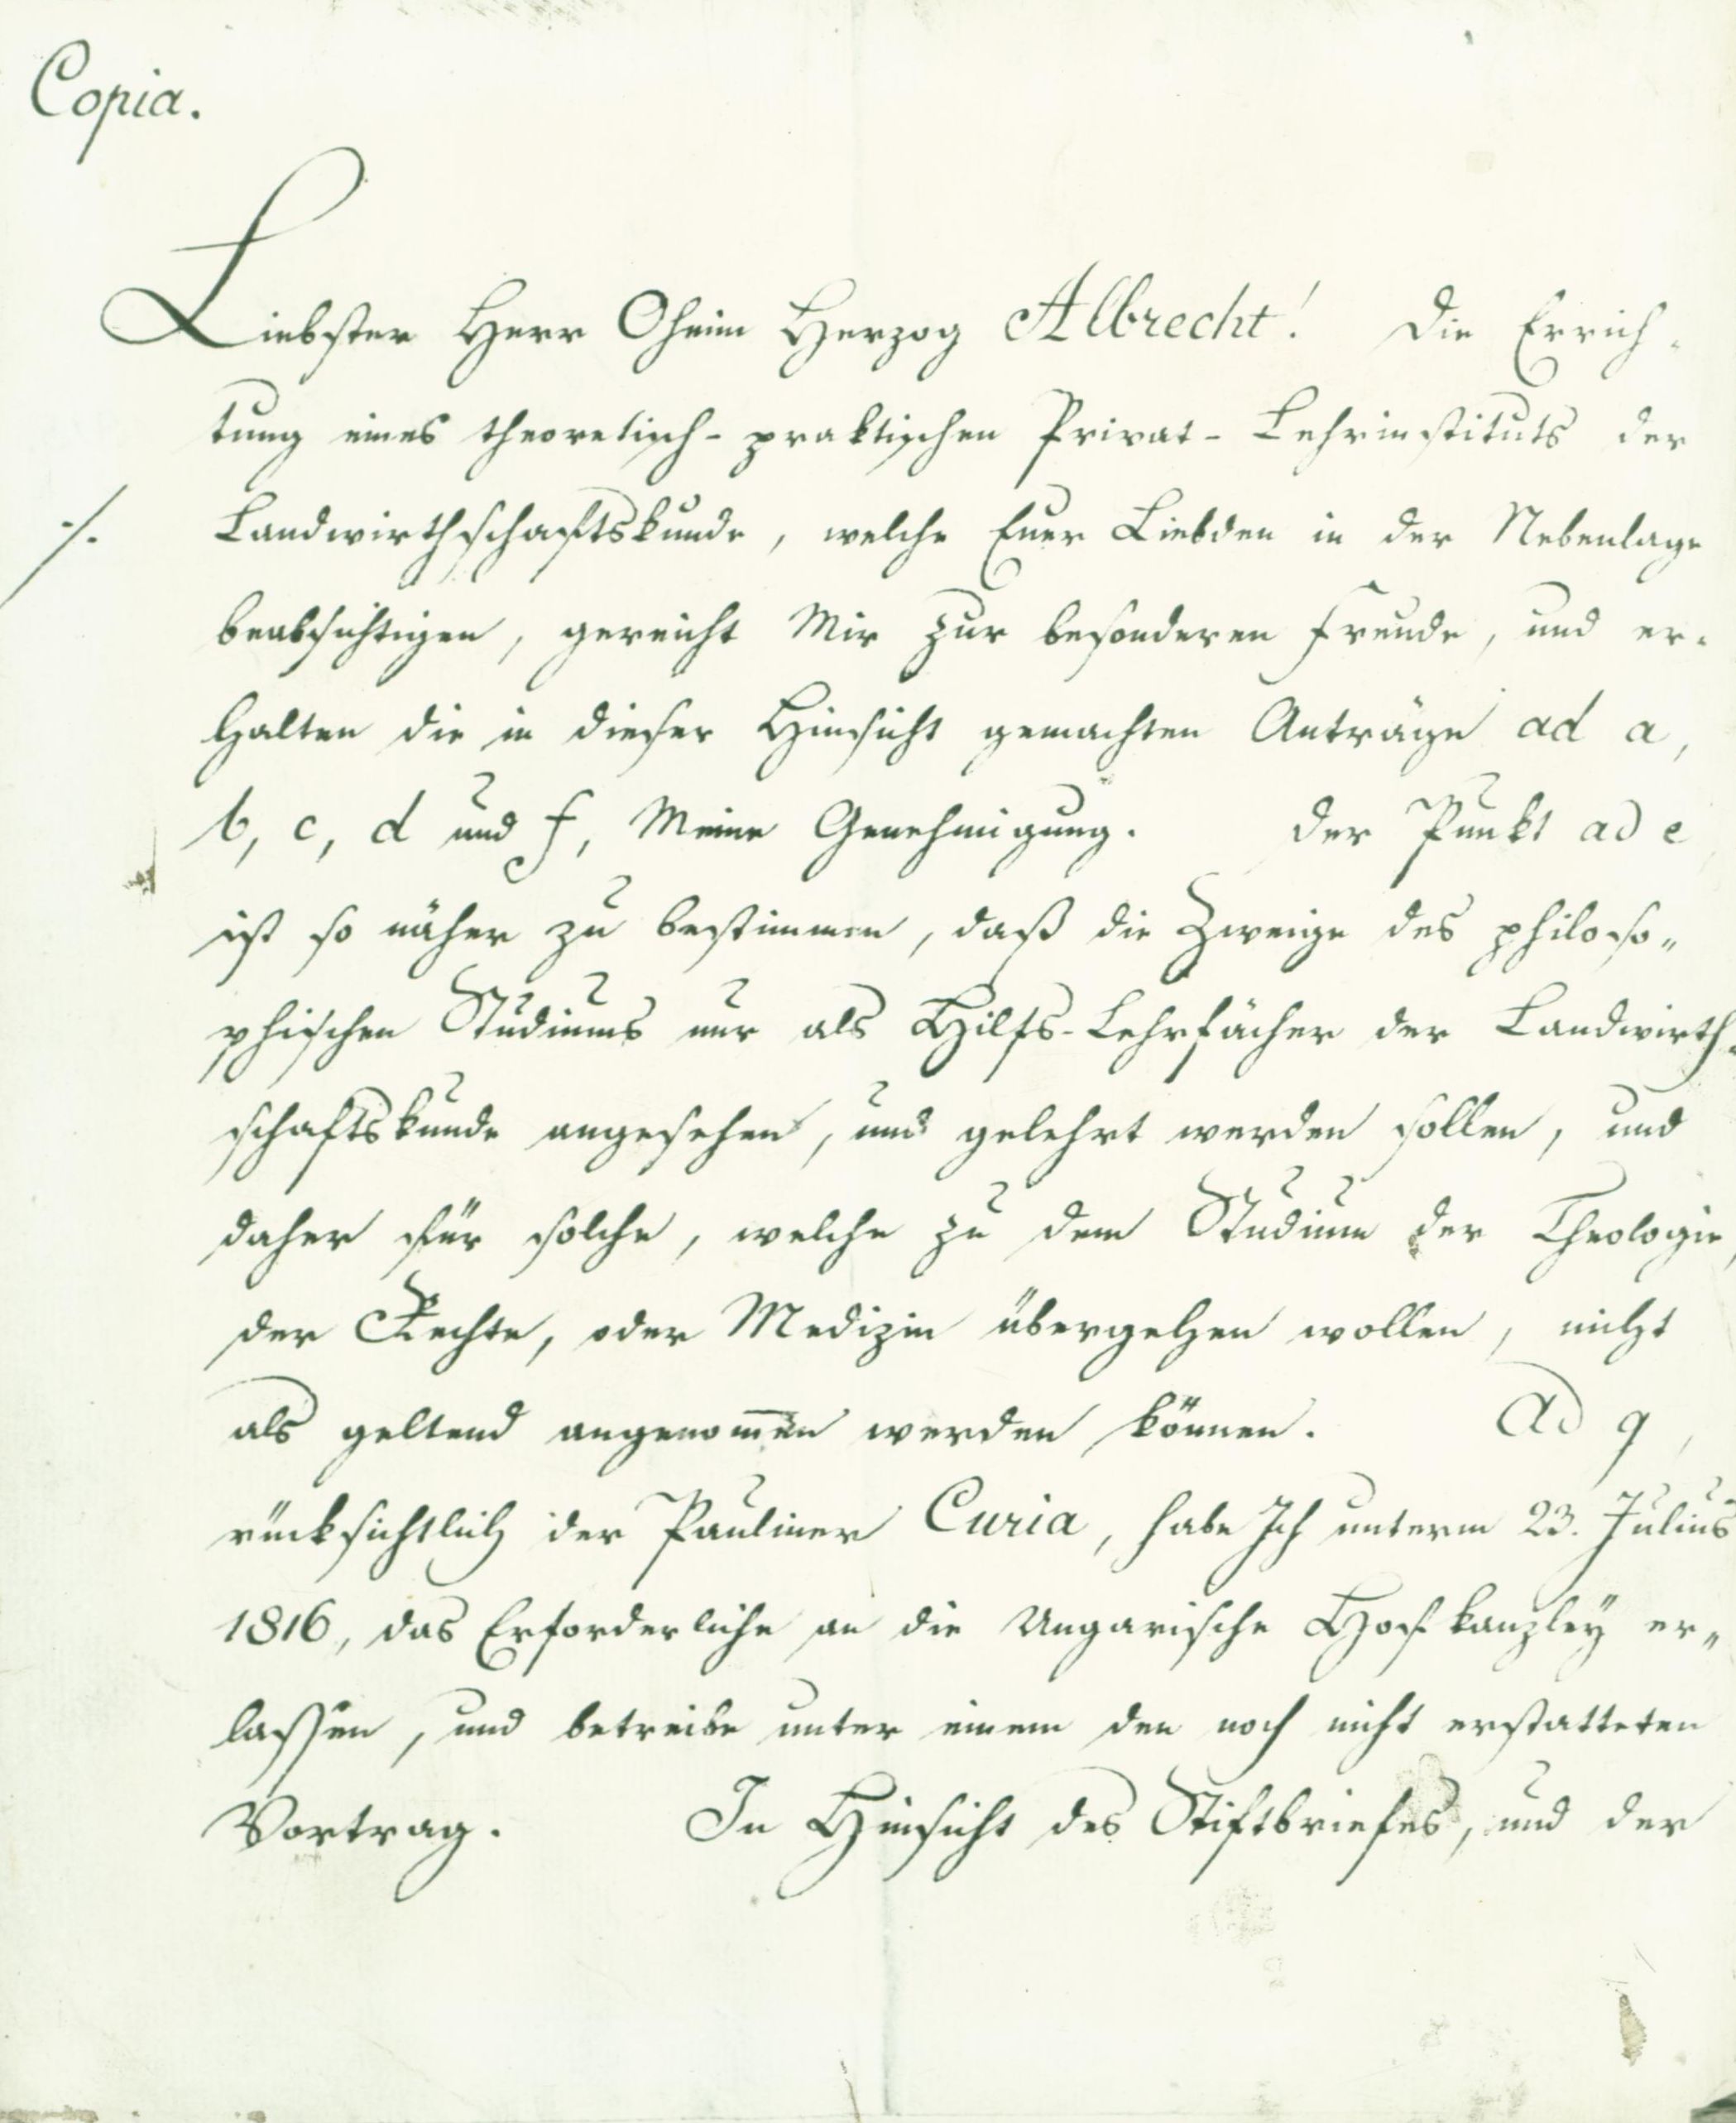 Copia.
Liebster Herr Oheim Herzog Albrecht! Die Errich-
tung eines theoretisch-praktischen Privat-Lehrinstituts der
./. Landwirthschaftskunde, welche Euer Liebden in der Nebenlage
beabsichtigen, gereicht Mir zur besonderen Freude, und er-
halten die in dieser Hinsicht gemachten Anträge ad a,
b, c, d und f, Meine Genehmigung. Der Punkt ad e
ist so näher zu bestimmen, daß die Zweige des philoso„
phischen Studiums nur als Hilfs-Lehrfächer der Landwirth-
schaftskunde angesehen, und gelehrt werden sollen, und
daher für solche, welche zu dem Studium der Theologie,
der Rechte, oder Medizin übergehen wollen, nicht
als geltend angenom̅en werden können. Ad g,
rücksichtlich der Pauliner Curia, habe Ich unterm 23. Julius
1816, das Erforderliche an die Ungarische Hofkanzley er„
lassen, und betreibe unter einem den noch nicht erstatteten
Vortrag. In Hinsicht des Stiftbriefes, und der